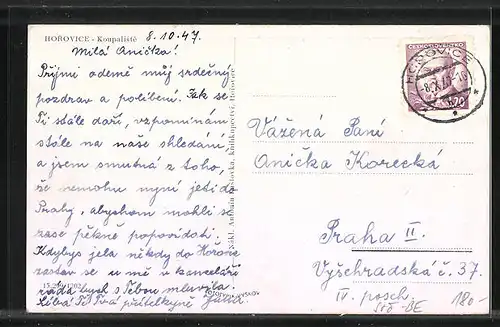 HOŘOVICE - Koupaliště
8.10.47.
Milá Aničko!
Přijmi odemě můj srdečný
pozdrav a políbení. Jak se
Ti stále daří, vzpomínám
stále na naše shledání,
a jsem smutná z toho,
že nemohu nyní jeti do
Prahy, abychom mohli si
zase pěkně popovídati.
Kdybys jela někdy do Hořovic
zastav se u mě v kanceláři
ráda bych s Tebou mluvila.
Líbá Tě Tvá přítelkyně
15.299/1202
knihkupectví, Hořovice
ČESKOSLOVENSKO
HOŘOVICE
-8.X.47-
Vážená Paní
Anička Korecká
Praha II.
Vyšehradská č. 37.
IV. posch.
180-